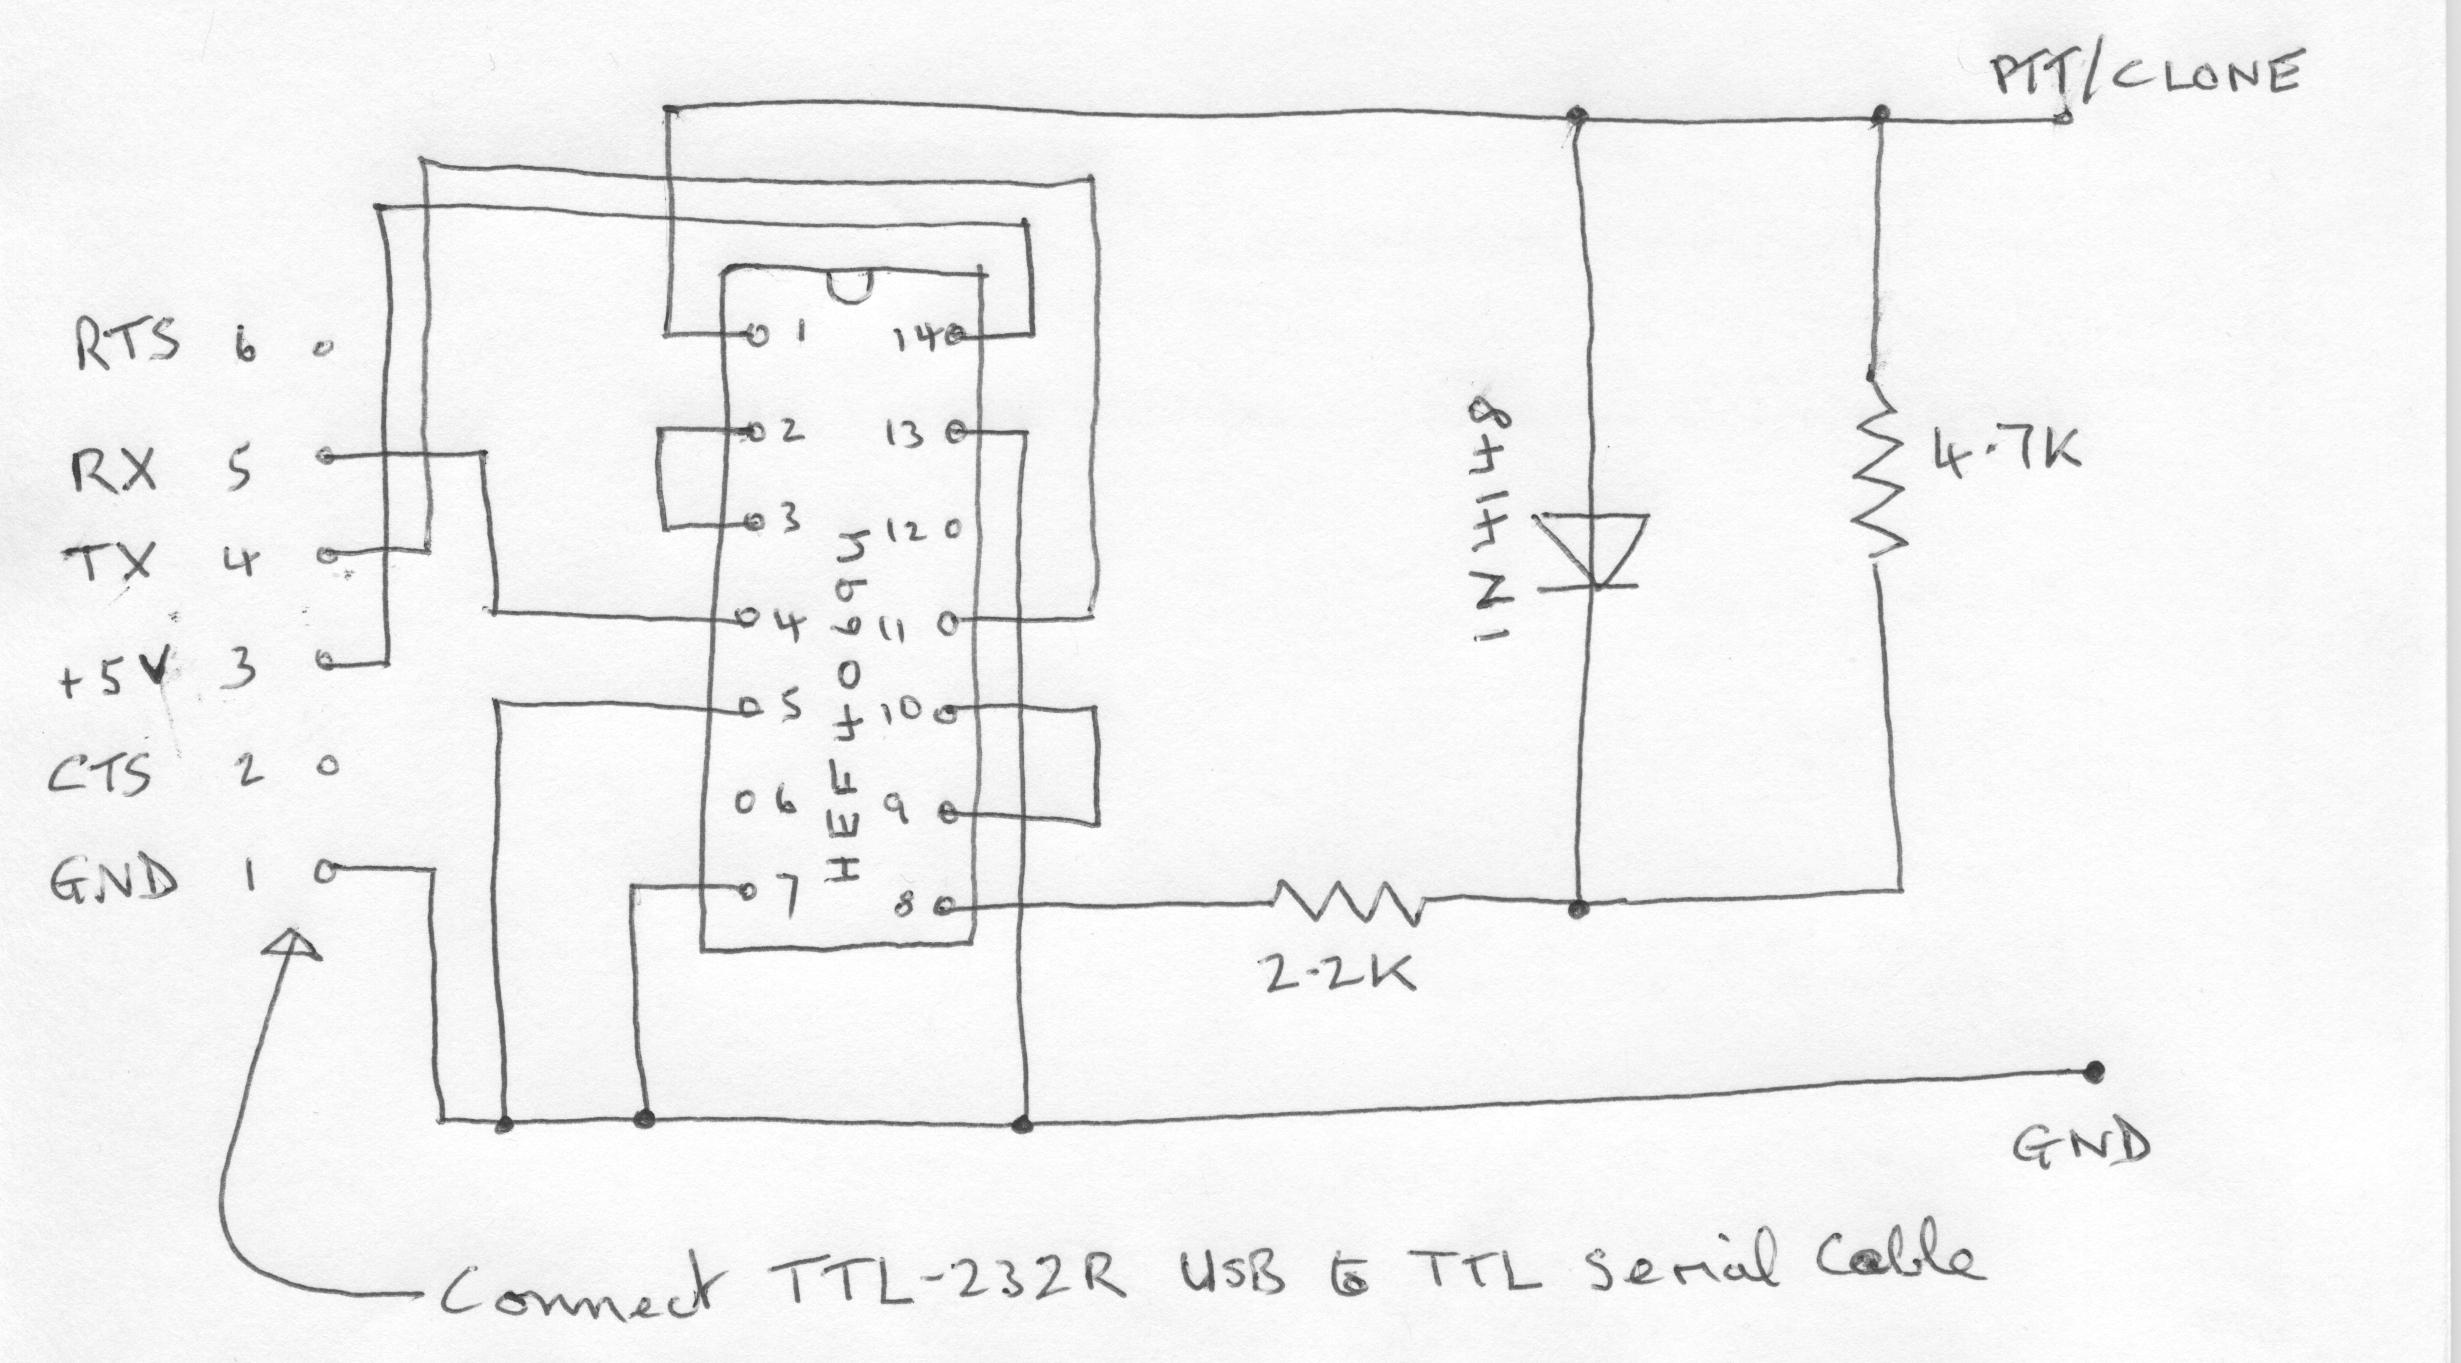 PTT/CLONE
RTS 6
RX 5
TX 4
+5V 3
CTS 2
GND 1
1 14
2 13
3 12
4 11
5 10
6 9
7 8
HEF4069U
1N4148
4.7K
2.2K
GND
Connect TTL-232R USB to TTL Serial Cable